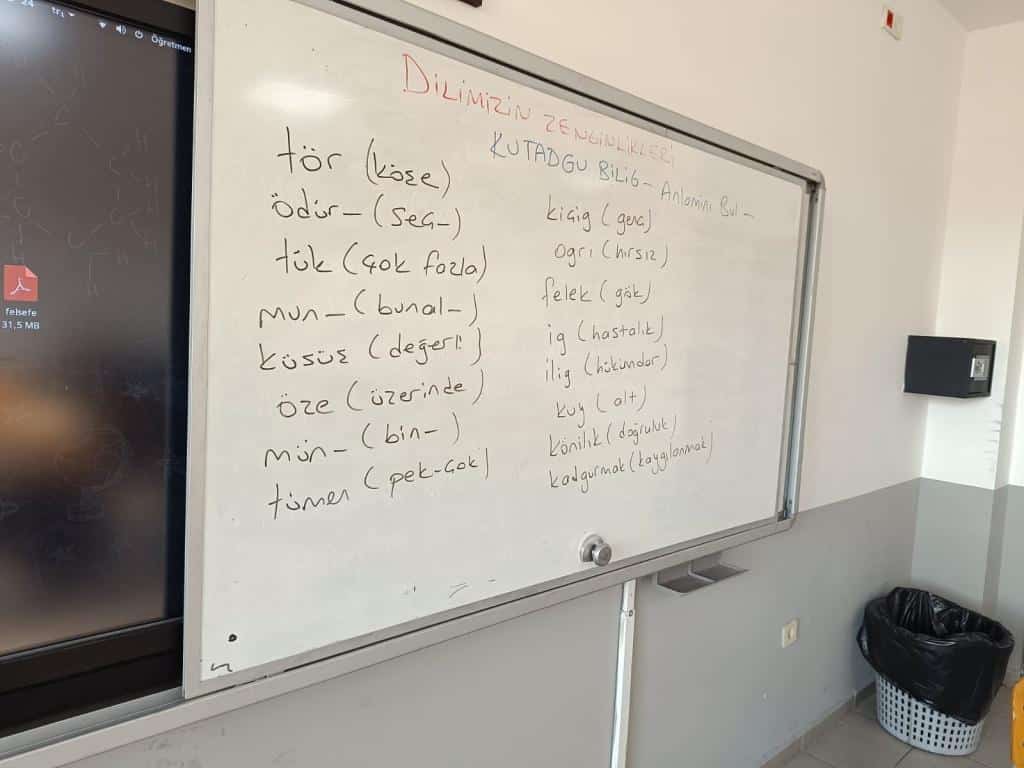 24 tr₁
Öğretmen
felsefe
31,5 MB
DİLİMİZİN ZENGİNLİKLERİ
KUTADGU BİLİG - Anlamını Bul -
tör (köşe)
ödür- (seç-)
tük (çok fazla)
mun- (bunal-)
küsüş (değerli)
öze (üzerinde)
mün- (bin-)
tümen (pek-çok)
kiçig (genç)
ogrı (hırsız)
felek (gök)
ig (hastalık)
ilig (hükümdar)
kuy (alt)
könilik (doğruluk)
kadgurmak (kaygılanmak)